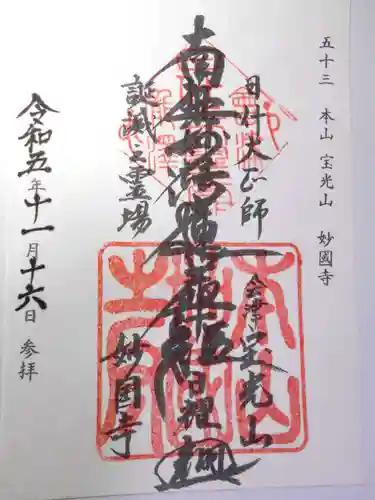 五十三 本山 宝光山 妙國寺
日什大正師
会津 宝光山
南無妙法蓮華経
日視
誕滅之霊場
妙国寺
令和五年十一月十六日 参拝